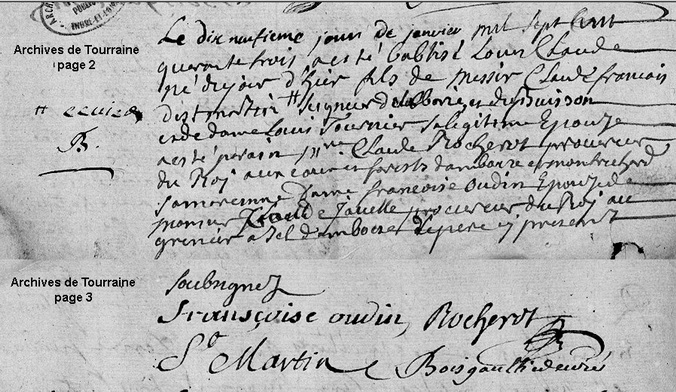 ARCHIVES
PUBLIC
INDRE-ET-LOIRE
Archives de Tourraine
page 2
Le dix neufieme jour de janvier mil sept cent
quarante trois a esté baptisé Louis Claude
né du jour d'hier fils de messir Claude francois
dst martin # seigneur des Bories et du Buisson
et de dame Louis Tournier sa legitime Epouze
# ecuier
a esté parain Mre Claude Rocherot procureur
B.
du Roj aux eaux et forests damboize et montrichard
sa maraine dame francoise oudin Epouze de
monsieur Claude Javelle procureur du Roj au
grenier a sel damboize le pere y present
Archives de Tourraine
page 3
soubsignez
françoise oudin, Rocherot
St Martin Boisgaultier curé